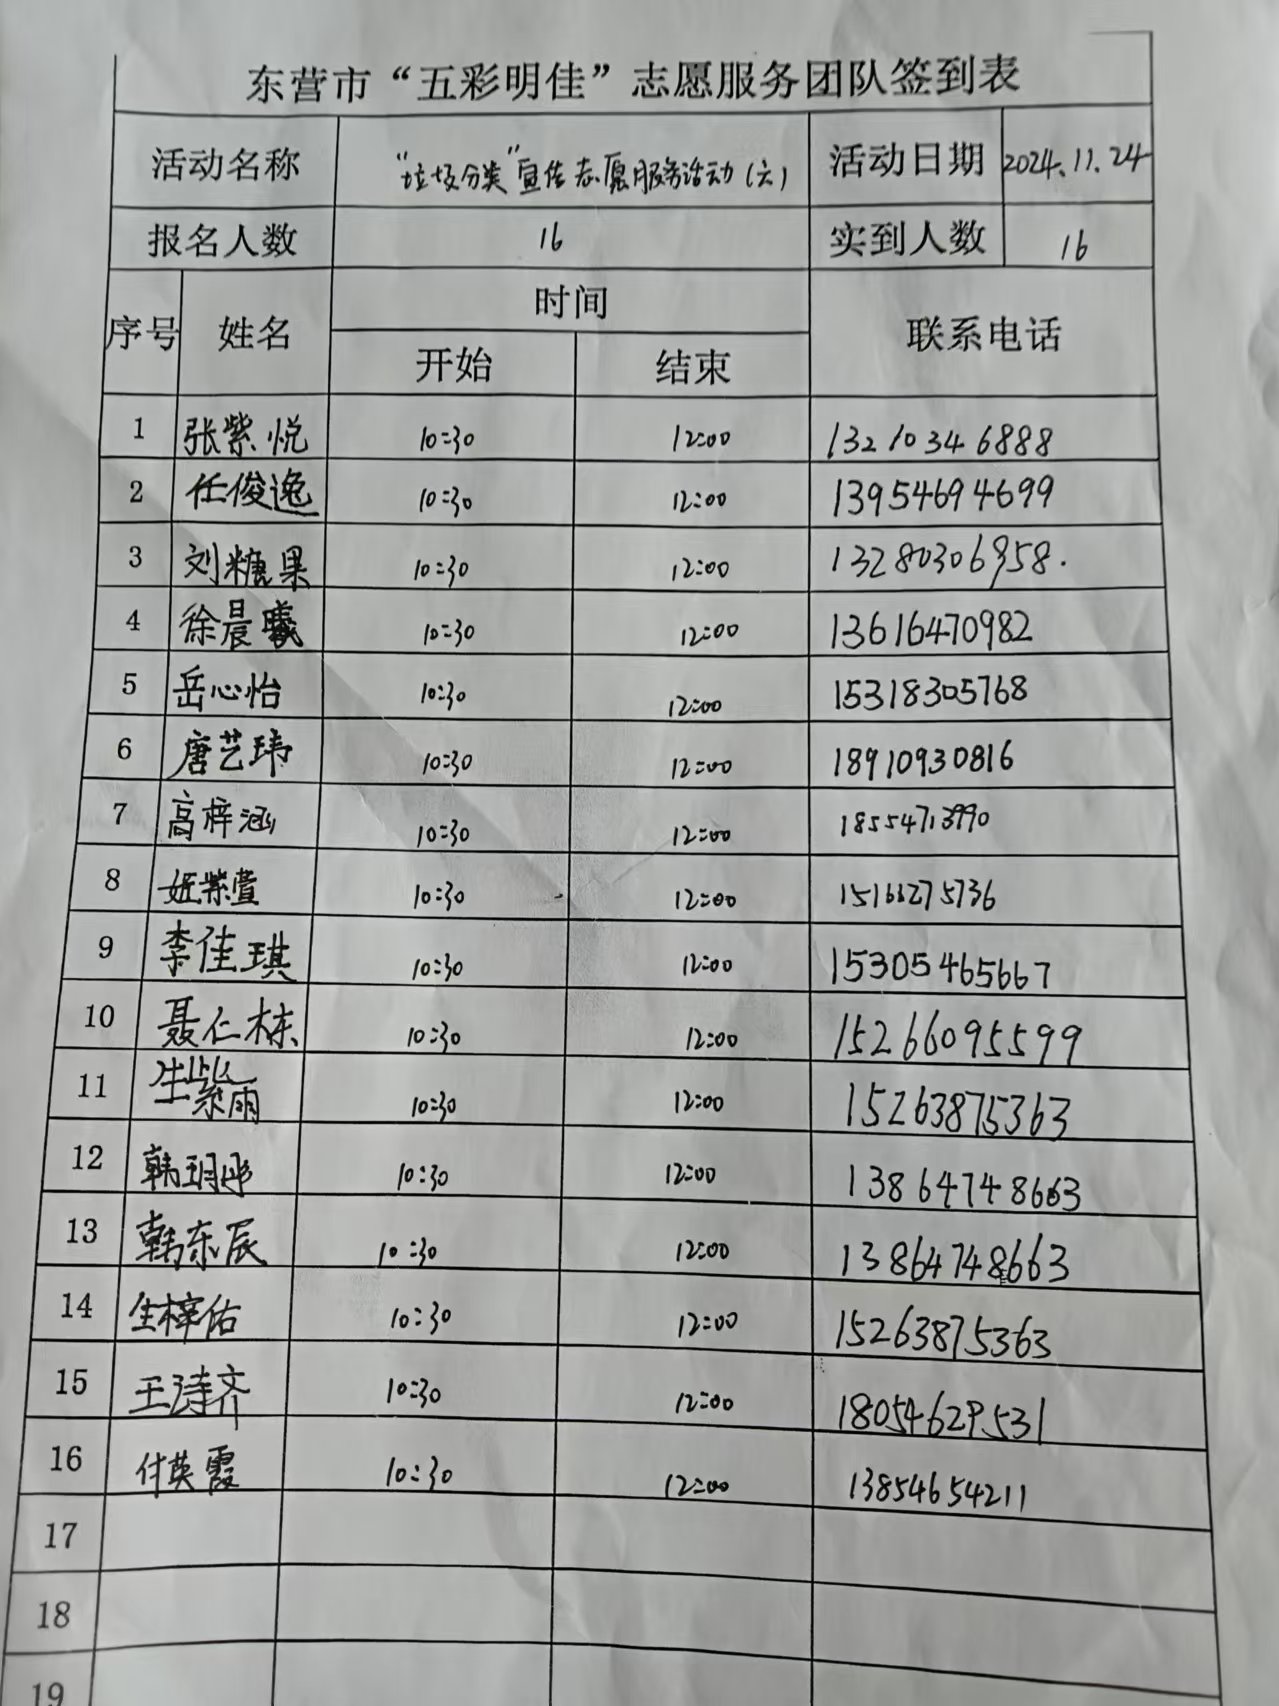 东营市“五彩明佳”志愿服务团队签到表
活动名称 “垃圾分类”宣传志愿服务活动（六） 活动日期 2024.11.24
报名人数 16 实到人数 16
序号 姓名 时间 联系电话
开始 结束
1 张紫悦 10:30 12:00 13210346888
2 任俊逸 10:30 12:00 13954694699
3 刘糖果 10:30 12:00 13280306958.
4 徐晨曦 10:30 12:00 13616470982
5 岳心怡 10:30 12:00 15318305768
6 唐艺玮 10:30 12:00 18910930816
7 高梓涵 10:30 12:00 18554713990
8 姬紫萱 10:30 12:00 15166275736
9 李佳琪 10:30 12:00 15305465667
10 聂仁栋 10:30 12:00 15266095599
11 生紫雨 10:30 12:00 15263875363
12 韩玥彤 10:30 12:00 13864748663
13 韩东辰 10:30 12:00 13864748663
14 生梓佑 10:30 12:00 15263875363
15 王诗齐 10:30 12:00 18054629531
16 付英霞 10:30 12:00 13854654211
17
18
19